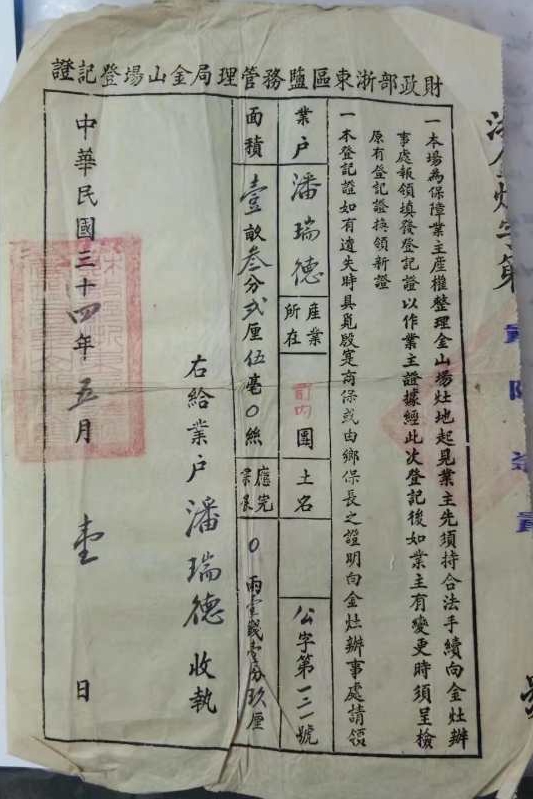 財政部浙東區鹽務管理局金山場登記證
一本場為保障業主產權整理金山場灶地起見業主先須持合法手續向金灶辦
事處報領填發登記證以作業主證據經此次登記後如業主有變更時須呈檢
原有登記證換領新證
一本登記證如有遺失時具覓殷寔商保或由鄉保長之證明向金灶辦事處請領
業户
潘瑞德
產業所在
團
土名
公字第一三一號
面積
壹畝叁分弍厘伍毫〇絲
應完
〇兩壹錢壹分玖厘
右給業户潘瑞德收執
中華民國三十四年五月壹日
字第